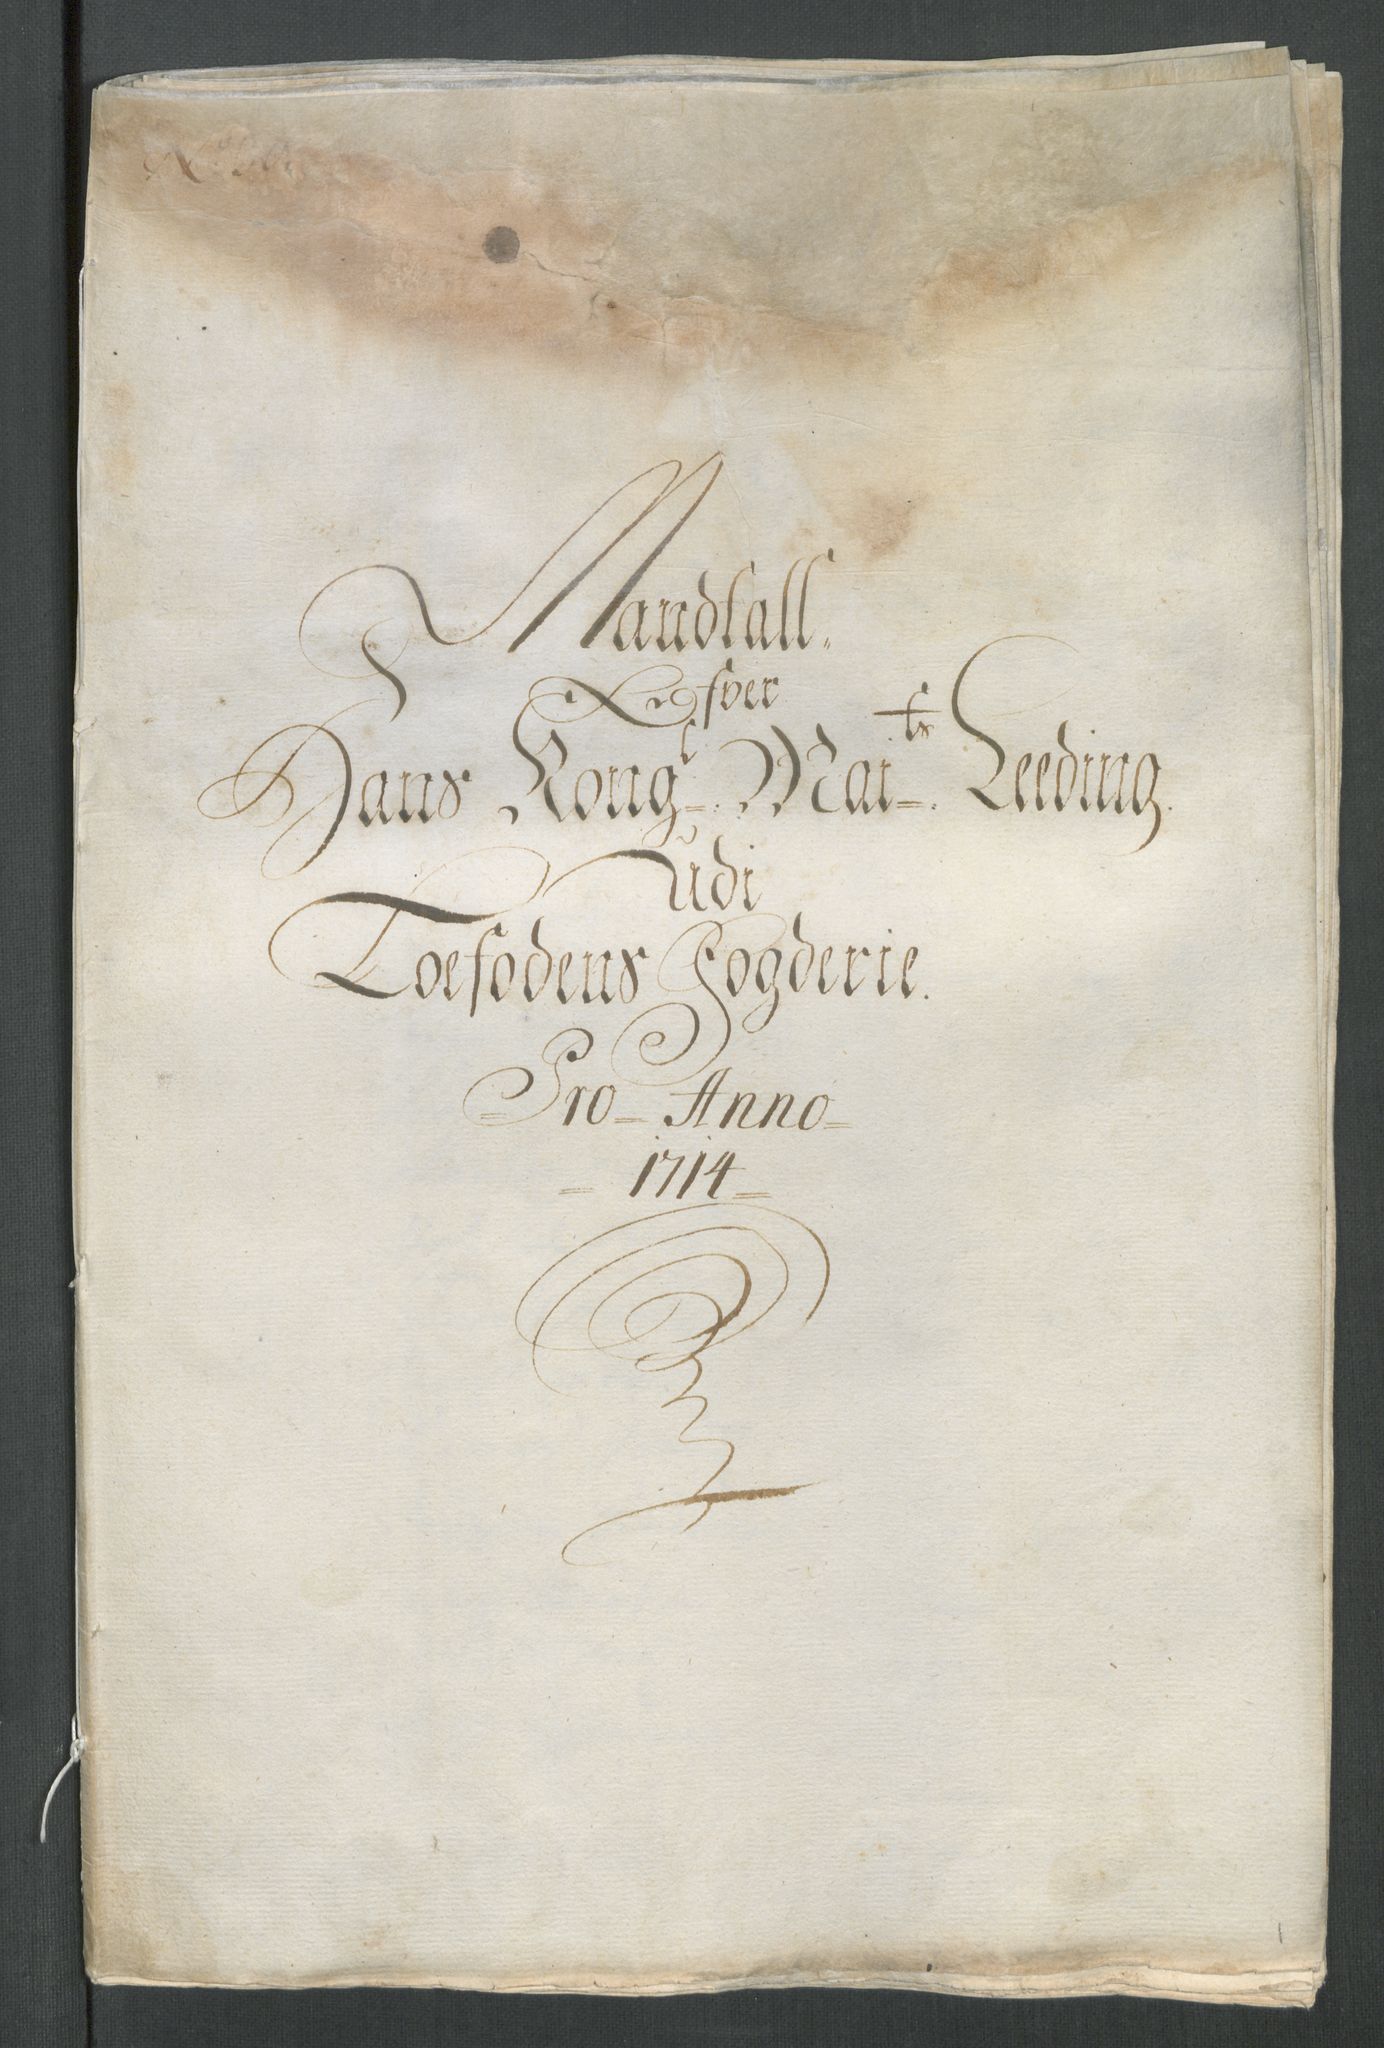 Mandtall.
Øfver
Hans Kongl. Maits. Leeding.
Udi
Foesodens Fogderie.
Pro Anno
1714